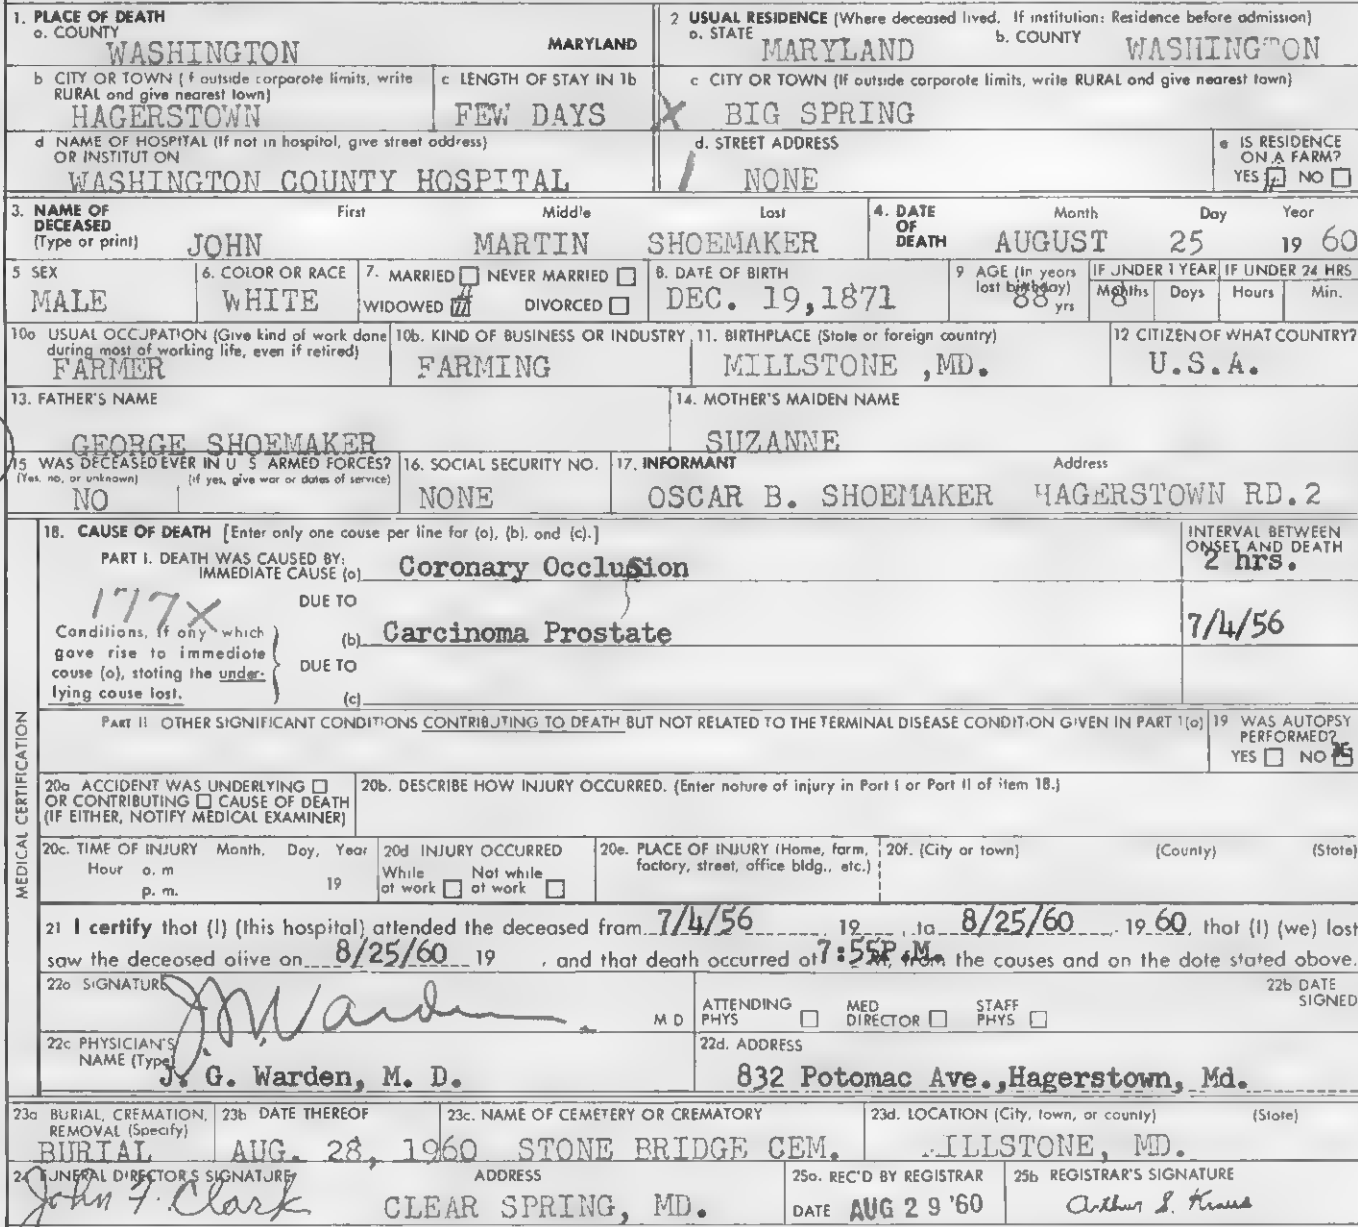 1. PLACE OF DEATH
a. COUNTY
WASHINGTON MARYLAND
2 USUAL RESIDENCE (Where deceased lived. If institution: Residence before admission)
a. STATE MARYLAND b. COUNTY WASHINGTON
b CITY OR TOWN (f outside corporate limits, write
RURAL and give nearest town)
HAGERSTOWN
c LENGTH OF STAY IN 1b
FEW DAYS
c CITY OR TOWN (If outside corporate limits, write RURAL and give nearest town)
X BIG SPRING
d NAME OF HOSPITAL (If not in hospital, give street address)
OR INSTITUT ON
WASHINGTON COUNTY HOSPITAL
d. STREET ADDRESS
NONE
e IS RESIDENCE
ON A FARM?
YES NO
3. NAME OF
DECEASED
(Type or print)
First Middle Last
JOHN MARTIN SHOEMAKER
4. DATE
OF
DEATH
Month Day Year
AUGUST 25 19 60
5 SEX
MALE
6. COLOR OR RACE
WHITE
7. MARRIED NEVER MARRIED
WIDOWED DIVORCED
8. DATE OF BIRTH
DEC. 19,1871
9 AGE (In years
last birthday)
88 yrs
IF UNDER 1 YEAR
Months Days
8
IF UNDER 24 HRS
Hours Min.
10a USUAL OCCUPATION (Give kind of work done
during most of working life, even if retired)
FARMER
10b. KIND OF BUSINESS OR INDUSTRY
FARMING
11. BIRTHPLACE (State or foreign country)
MILLSTONE ,MD.
12 CITIZEN OF WHAT COUNTRY?
U.S.A.
13. FATHER'S NAME
GEORGE SHOEMAKER
14. MOTHER'S MAIDEN NAME
SUZANNE
15 WAS DECEASED EVER IN U S ARMED FORCES?
(Yes, no, or unknown) (If yes, give war or dates of service)
NO
16. SOCIAL SECURITY NO.
NONE
17. INFORMANT Address
OSCAR B. SHOEMAKER HAGERSTOWN RD.2
18. CAUSE OF DEATH [Enter only one cause per line for (a), (b). and (c).]
INTERVAL BETWEEN
ONSET AND DEATH
PART I. DEATH WAS CAUSED BY:
IMMEDIATE CAUSE (a) Coronary Occlusion 2 hrs.
177X
DUE TO
(b) Carcinoma Prostate 7/4/56
Conditions, if any which
gave rise to immediate
cause (a), stating the under-
lying cause last.
DUE TO
(c)
PART II OTHER SIGNIFICANT CONDITIONS CONTRIBUTING TO DEATH BUT NOT RELATED TO THE TERMINAL DISEASE CONDITION GIVEN IN PART 1(a)
19 WAS AUTOPSY
PERFORMED?
YES NO
MEDICAL CERTIFICATION
20a ACCIDENT WAS UNDERLYING
OR CONTRIBUTING CAUSE OF DEATH
(IF EITHER, NOTIFY MEDICAL EXAMINER)
20b. DESCRIBE HOW INJURY OCCURRED. (Enter nature of injury in Part I or Part II of item 18.)
20c. TIME OF INJURY Month, Day, Year
Hour a. m
p. m. 19
20d INJURY OCCURRED
While Not while
at work at work
20e. PLACE OF INJURY (Home, farm,
factory, street, office bldg., etc.)
20f. (City or town) (County) (State)
21 I certify that (I) (this hospital) attended the deceased from 7/4/56 19 , to 8/25/60 19 60, that (I) (we) last
saw the deceased alive on 8/25/60 19 , and that death occurred at 7:55P.M. M, from the causes and on the date stated above.
22a SIGNATURE
J. G. Warden M D
ATTENDING
PHYS
MED
DIRECTOR
STAFF
PHYS
22b DATE
SIGNED
22c PHYSICIAN'S
NAME (Type)
J. G. Warden, M. D.
22d. ADDRESS
832 Potomac Ave.,Hagerstown, Md.
23a BURIAL, CREMATION,
REMOVAL (Specify)
BURIAL
23b DATE THEREOF
AUG. 28, 1960
23c. NAME OF CEMETERY OR CREMATORY
STONE BRIDGE CEM.
23d. LOCATION (City, town, or county) (State)
ILLSTONE, MD.
24 FUNERAL DIRECTOR'S SIGNATURE
John F. Clark
ADDRESS
CLEAR SPRING, MD.
25a. REC'D BY REGISTRAR
DATE AUG 29 '60
25b REGISTRAR'S SIGNATURE
Arthur S. Kraus